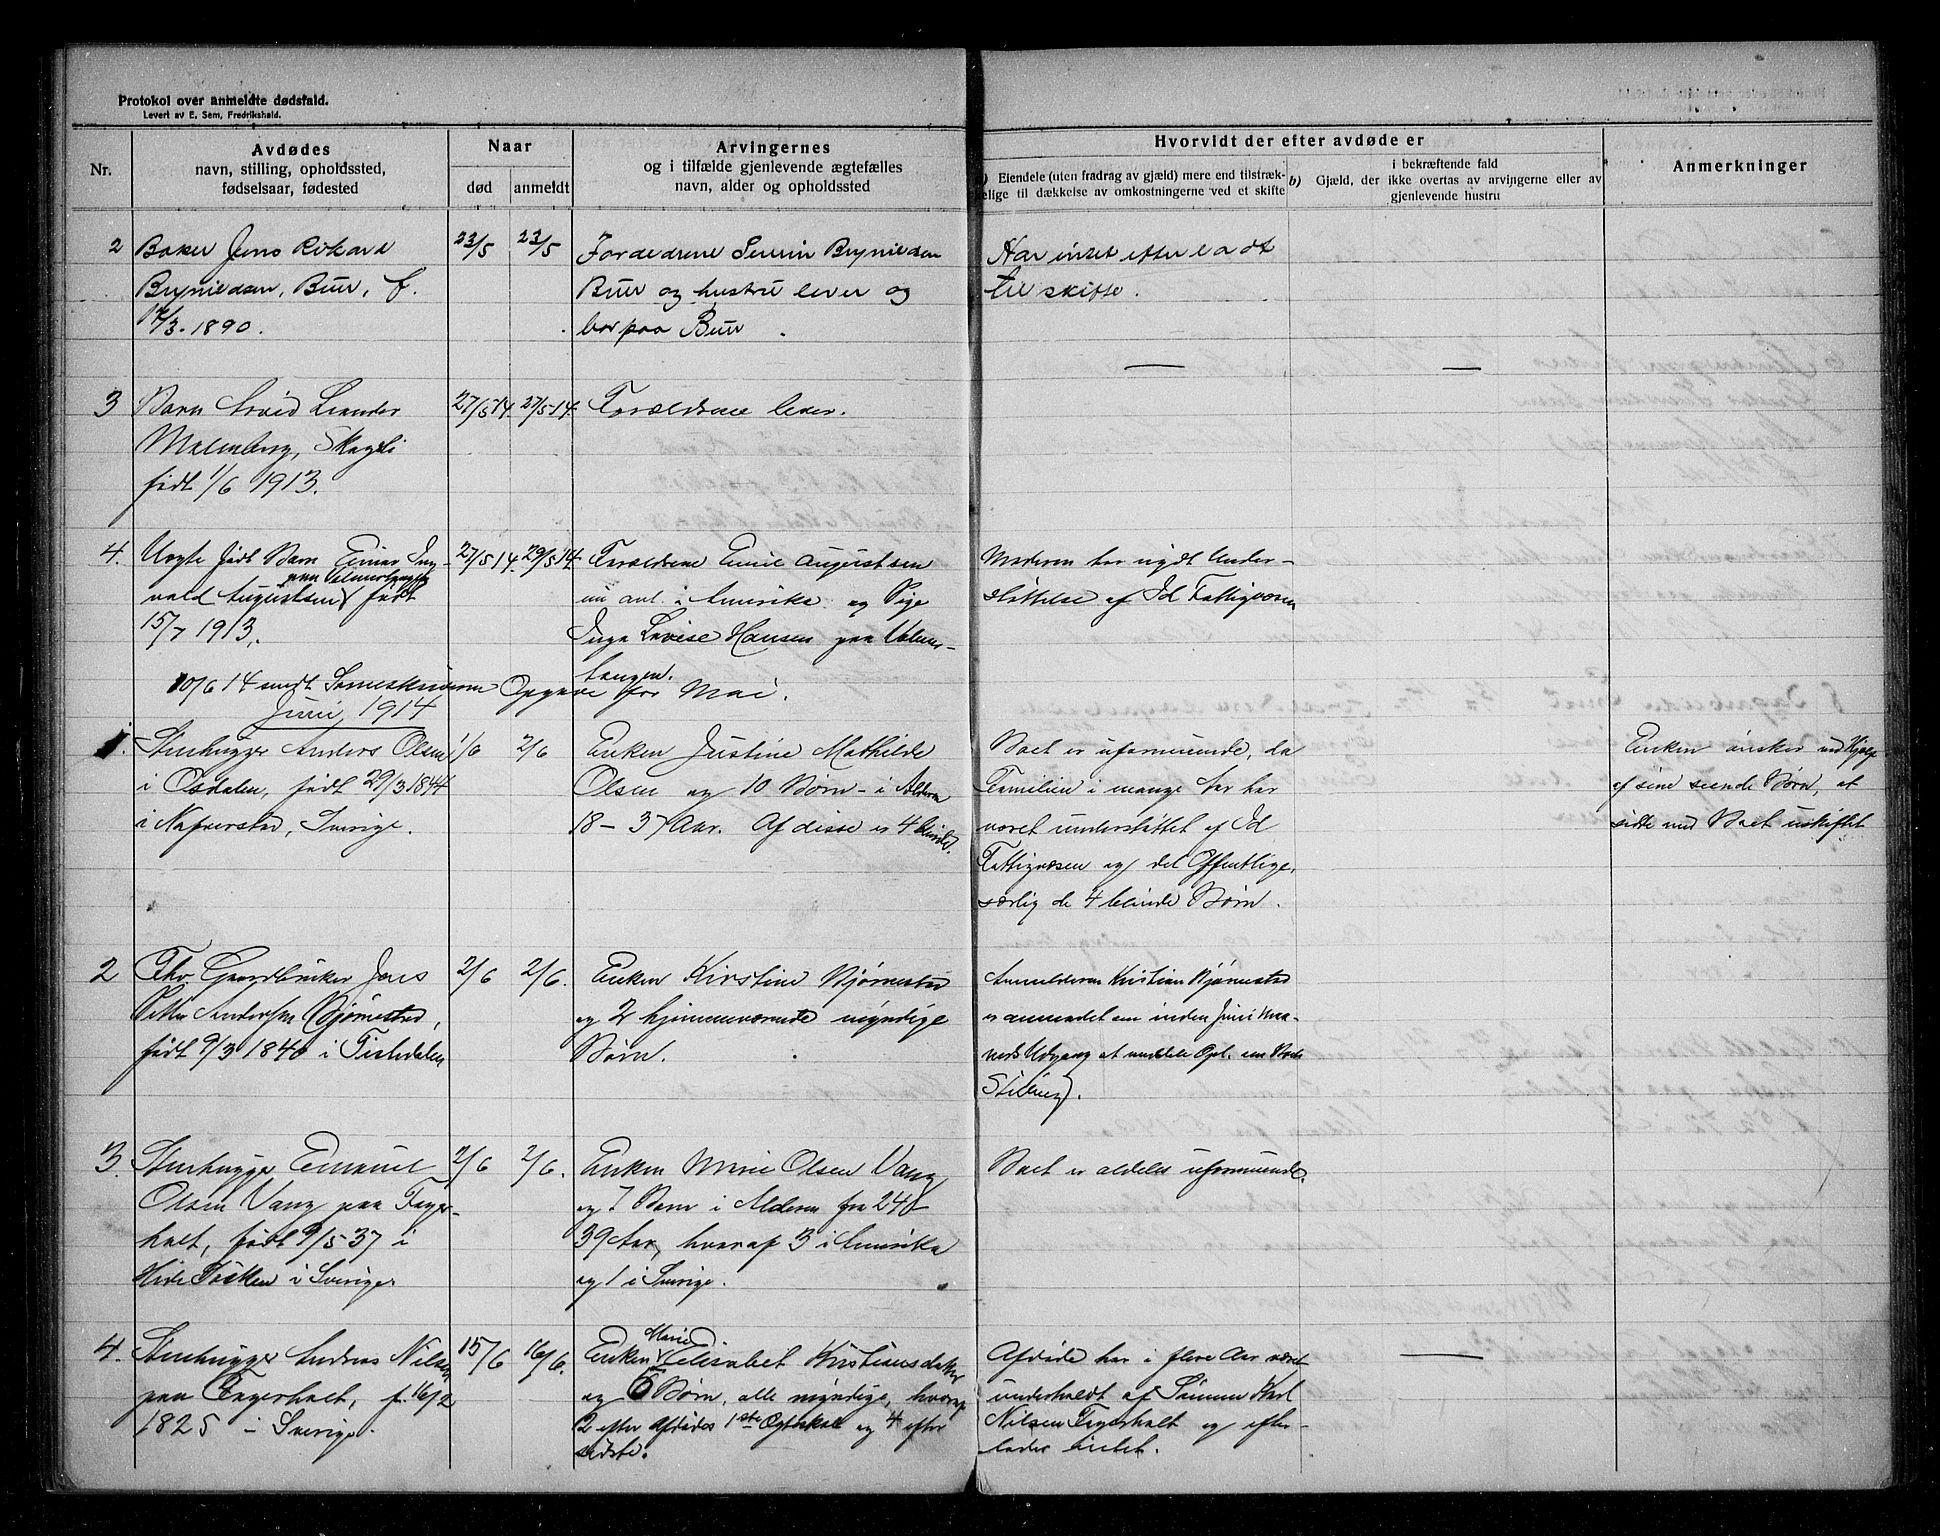 Protokol over anmeldte dødsfald.
Levert av E. Sem, Fredrikshald.
Nr.
Avdødes
navn, stilling, opholdssted,
fødselsaar, fødested
Naar
død
anmeldt
Arvingernes
og i tilfælde gjenlevende ægtefælles
navn, alder og opholdssted
Hvorvidt der efter avdøde er
Eiendele (uten fradrag av gjæld) mere end tilstræk-
kelige til dækkelse av omkostningerne ved et skifte
b)
i bekræftende fald
Gjæld, der ikke overtas av arvingerne eller av
gjenlevende hustru
Anmerkninger
2
Baker Jens Rikard
Brynildsen, Buer, f.
/3. 1890.
23/5
23/5
Forældrene Brynildsen
Buer og hustru lever og
bor paa Buer
Har intet efterladt
til skifte.
3
Barn Arvid Leander
Malmberg, Skogli
født 1/6 1913.
27/5 14.
27/5 14.
Forældrene lever.
4.
Uægte født Barn Einar Ing-
vald Augustsen født
15/7 1913.
27/5 14.
29/5 14
Forældrene Emil Augustsen
nu ant. i Amerika og Pige
Inga Lovise Hansen paa
Moderen har nydt Under-
støttelse af Id Fattigvæsen
10/6 14 sendt Sorenskriveren Opgave for Mai.
Juni 1914
1.
Stenhugger Anders Olsen
i Osdalen, født 29/3 1844
i Naverstad, Sverige.
1/6
2/6
Enken Justine Mathilde
Olsen og 10 Børn - i Alderen
18 - 37 Aar. Af disse er 4 blinde.
Boet er uformuende, da
Familien i mange Aar har
været understøttet af Id
Fattigvæsen og det Offentlige,
særlig de 4 blinde Børn.
Enken ønsker ved Hjælp
af sine seende Børn, at
sidde med Boet uskiftet
2
Fhv. Gaardbruker Jens
Petter Andersen Bjørnestad,
født 9/3 1840 i Tistedalen
2/6
2/6.
Enken Kirstine Bjørnestad
og 2 hjemmeværende myndige
Børn.
Anmelderen Kristian Bjørnestad
er anmodet om inden Juni Maa-
neds Udgang at meddele Opl. om Boets
Stilling.
3
Stenhugger Emanuel
Olsen Vang paa Fager-
holt, født 9/5-37 i
i Sverige
2/6
2/6.
Enken Marie Olsen Vang
og 7 Børn i Alderen fra 24 -
39 Aar, hvoraf 3 i Amerika
og 1 i Sverige.
Boet er aldeles uformuende.
4.
Stenhugger Andreas Nilsen
paa Fagerholt, f. 16/2
1825 i Sverige.
15/6
16/6.
Marie
Enken Elisabet Kristiansdatter
og 6 Børn, alle myndige, hvoraf
2 efter Afdødes 1ste Egteskab og 4 efter
sidste.
Afdøde har i flere Aar været
underholdt af Sønnen Karl
Nilsen Fagerholt og efter-
lader intet.